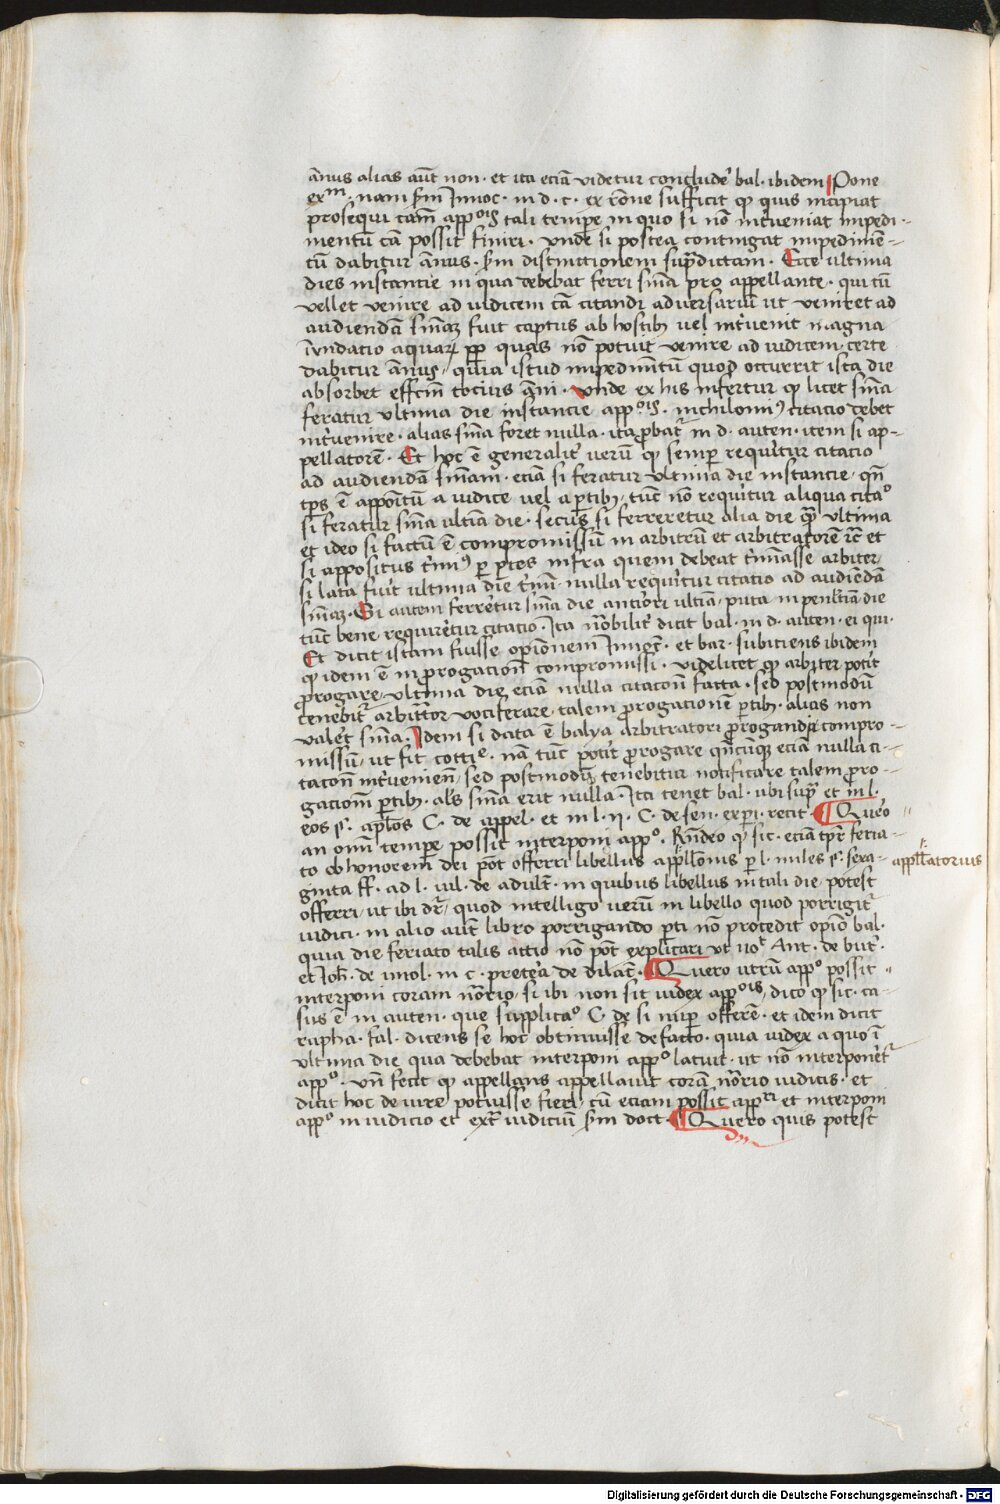 ān̄us alias aūt non · et ita eciā videtur conclude᷒ bal · ibidem Pone
exᵐ · nam s̄m Innoc · in d · c · ex rōne sufficit ꝙ quis incipiat
prosequi cām appᵒⁱˢ tali tempe in quo si nō int᷒ueniat impedi-
mentū cā possit finiri · vnde si postea contingat impedimē-
tū dabitur ān̄us · s̄m distinctionem sup̄dictam · Ecce ultima
dies instancie in qua debebat ferri sn̄ia pro appellante · qui cū
vellet venire ad iudicem cā citandi adversariū ut veniret ad
audiendā sn̄iaꝫ fuit captus ab hostibꝫ uel int᷒uenit magna
īundacio aquaꝝ pp̄ quas nō potuit venire ad iudicem · certe
dabitur ān̄us · quia istud impedim̄tū quod occurrit ista die
absorbet effc̄m tocius āni · vnde ex his infertur ꝙ licet sn̄ia
feratur vltima die instancie appᵒⁱˢ · nichilomiꝰ citacio debet
int᷒uenire · alias sn̄ia foret nulla · ita ꝓbat᷒ in d · auten · item si ap-
pellatorē · Et hoc ē generalit᷒ uerū ꝙ semp̱ requir᷒tur citacio
ad audiendā sn̄iam · eciā si feratur vltima die instancie · qn̄
tp̄s ē appoītū a iudice uel a p̱tibꝫ · tūc nō requir᷒tur aliqua citaᵒ
si feratur sn̄ia ultīa die · secus si ferreretur alia die qͣ̄ vltima
et ideo si factū ē compromissū in arbitrū et arbitratorē rc̄ et
si appositus t᷒miꝰ p̱ p̱tes infra quem debeat t᷒minasse arbiter
si lata fuit ultima die t᷒mini nulla requir᷒tur citatio ad audiēdā
sn̄iaꝫ · Si autem ferretur sn̄ia die anti᷒ori ultīa · puta in penl᷒tīa die
tūc bene requireretur citatio · Ita no᷒bilit᷒ dicit bal · in d · auten · ei qui ·
Et dicit istam fuisse opionem Innoc̄ · et bar · subiciens ibidem
ꝙ idem ē in ꝓrogacion̄ compromissi · videlicet ꝙ arbiter pot᷒it
ꝓrogare · vltima die eciā nulla citacon̄ facta · sed postmodū
tenebit᷒ arbitra᷒tor vociferare talem ꝓrogacionē p̱tibꝫ · alias non
valet sn̄ia · Idem si data ē balya arbitratori ꝓrogandi compro-
missū · ut fit cottiᵉ · nā tūc pot᷒it ꝓrogare qn̄cūqꝫ eciā nulla ci-
tacon̄ int᷒uenien̄ · sed postmodū tenebitur notificare talem ꝓro-
gacionē p̱tibꝫ · al᷒s sn̄ia erit nulla · Ita tenet bal · ubi sup̄ et in l ·
eos §· ap̄l᷒os C · de appel᷒ · et in l · ij · C · de sen · ex p̱i · recit · Quero
an om̄i tempe possit interponi appᵒ · Rn̄deo ꝙ sic · eciā tp̱r᷒ feria-
to ob honorem dei pōt offerri libellus app̱ll᷒onis p̱ l · miles §· sexa-
appll᷒atorius
ginta ff · ad l · iul · de adult᷒ · in quibus libellus in tali die potest
offerri · ut ibi dr̄ · quod intelligo uerū in libello quod porrigit᷒
iudici · in alio aūt libro porrigando p̱ti nō procedit opio᷒ bal ·
quia die feriato talis actio nō pōt explicari ut noᵗ Ant · de but᷒ ·
et Ioh᷒ · de imol · in c · prete᷒a de dilac᷒ · Quero utrū appᵒ possit
interponi coram no᷒rio · si ibi non sit iudex appᵒⁱˢ · dico ꝙ sic · ca-
sus ē in auten · que supplicaᵒ C · de si nup̱ offerē · et idem dicit
rapha · ful · dicens se hoc obtinuisse de facto · quia iudex a quo ī
vltima die qua debebat interponi appᵒ latuit · ut nō interponeret᷒
appᵒ · Vn̄ fecit ꝙ appellans appellauit corā no᷒rio iudicis · et
dicit hoc de iure potuisse fieri · cū eciam possit appᵃʳⁱ et interponi
appᵒ in iudicio et ext᷒ iudiciū s̄m doct · Quero quis potest